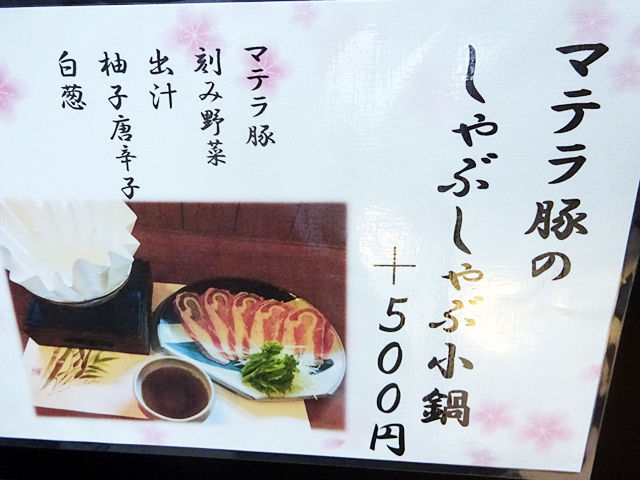 マテラ豚の
しゃぶしゃぶ小鍋
+500円
マテラ豚
刻み野菜
出汁
柚子唐辛子
白葱